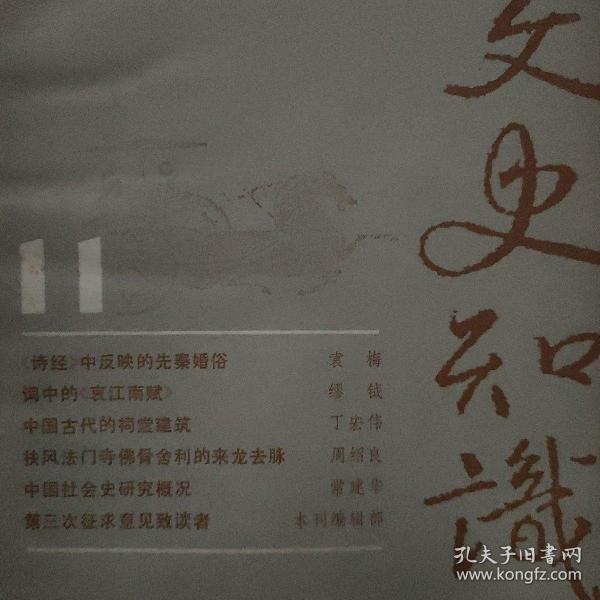 文史知識
11
《诗经》中反映的先秦婚俗 袁梅
词中的《哀江南赋》 缪钺
中国古代的祠堂建筑 丁宏伟
扶风法门寺佛骨舍利的来龙去脉 周绍良
中国社会史研究概况 常建华
第三次征求意见致读者 本刊编辑部
孔夫子旧书网
www.kongfz.com